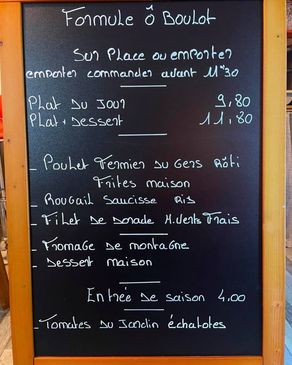 Formule ô Boulot
Sur Place ou emporter
emporter commander avant 11H30
Plat du Jour 9,80
Plat + Dessert 11,80
- Poulet Fermier du Gers Rôti
Frites maison
- Rougail Saucisse Ris
- Filet de Dorade H. Verts Frais
- Fromage de montagne
- Dessert maison
Entrée de saison 4,00
- Tomates du Jardin échalotes